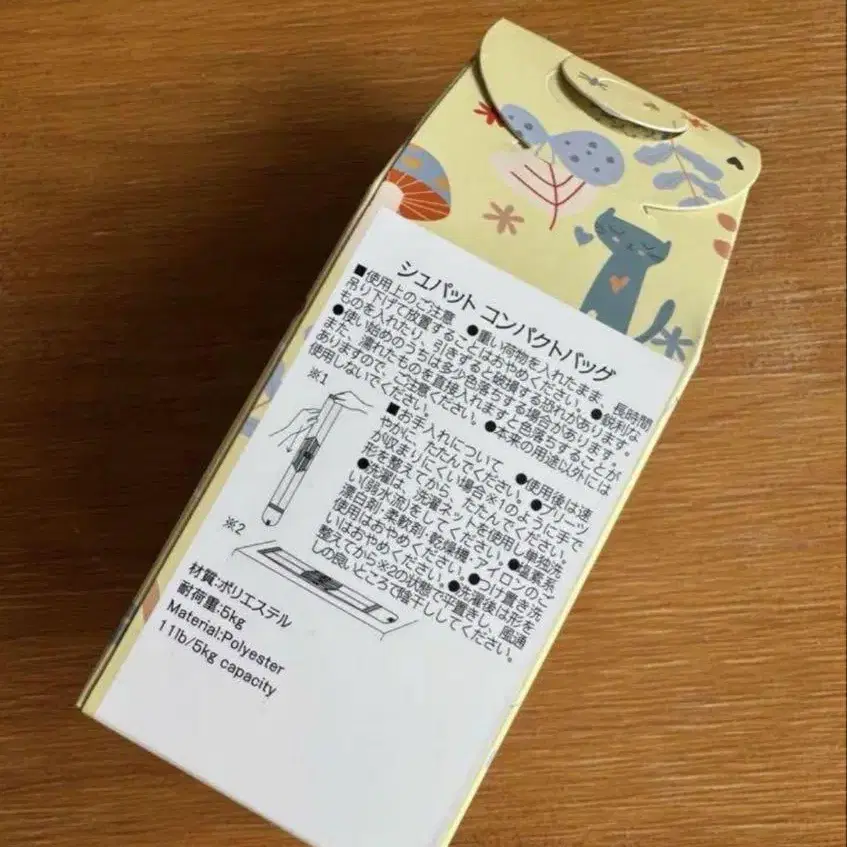 シュパット コンパクトバッグ
■使用上のご注意 ●重い荷物を入れたまま、長時間
吊り下げて放置することはおやめください。●鋭利な
ものを入れたり、引きずると破損する恐れがあります。
●使い始めのうちは多少色落ちする場合があります。
また、濡れたものを直接入れますと色落ちすることが
ありますので、ご注意ください。●本来の用途以外には
使用しないでください。
※1
■お手入れについて ●使用後は速
やかに、たたんでください。●プリーツ
が収まりにくい場合※1のように手で
形を整えてから、たたんでください。
●洗濯は、洗濯ネットを使用し単独洗
い(弱水流)をしてください。●塩素系
漂白剤/柔軟剤/乾燥機/アイロンのご
使用はおやめください。●つけ置き洗
いはおやめください。●洗濯後は形を
整えてから※2の状態で平置きし、風通
しの良いところで陰干ししてください。
※2
材質:ポリエステル
耐荷重:5kg
Material:Polyester
11lb/5kg capacity